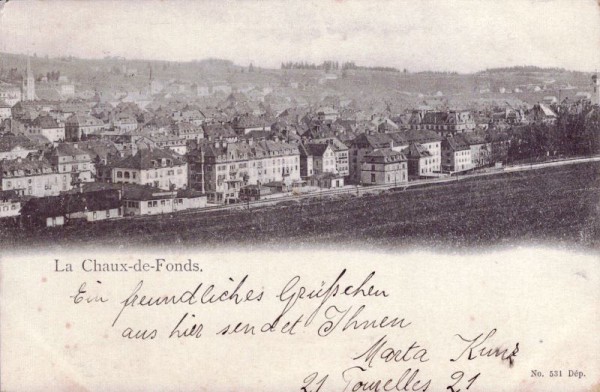 La Chaux-de-Fonds.
Ein freundliches Grüßchen
aus hier sendet Ihnen
Marta Kunz
No. 531 Dép.
21 Tourelles 21